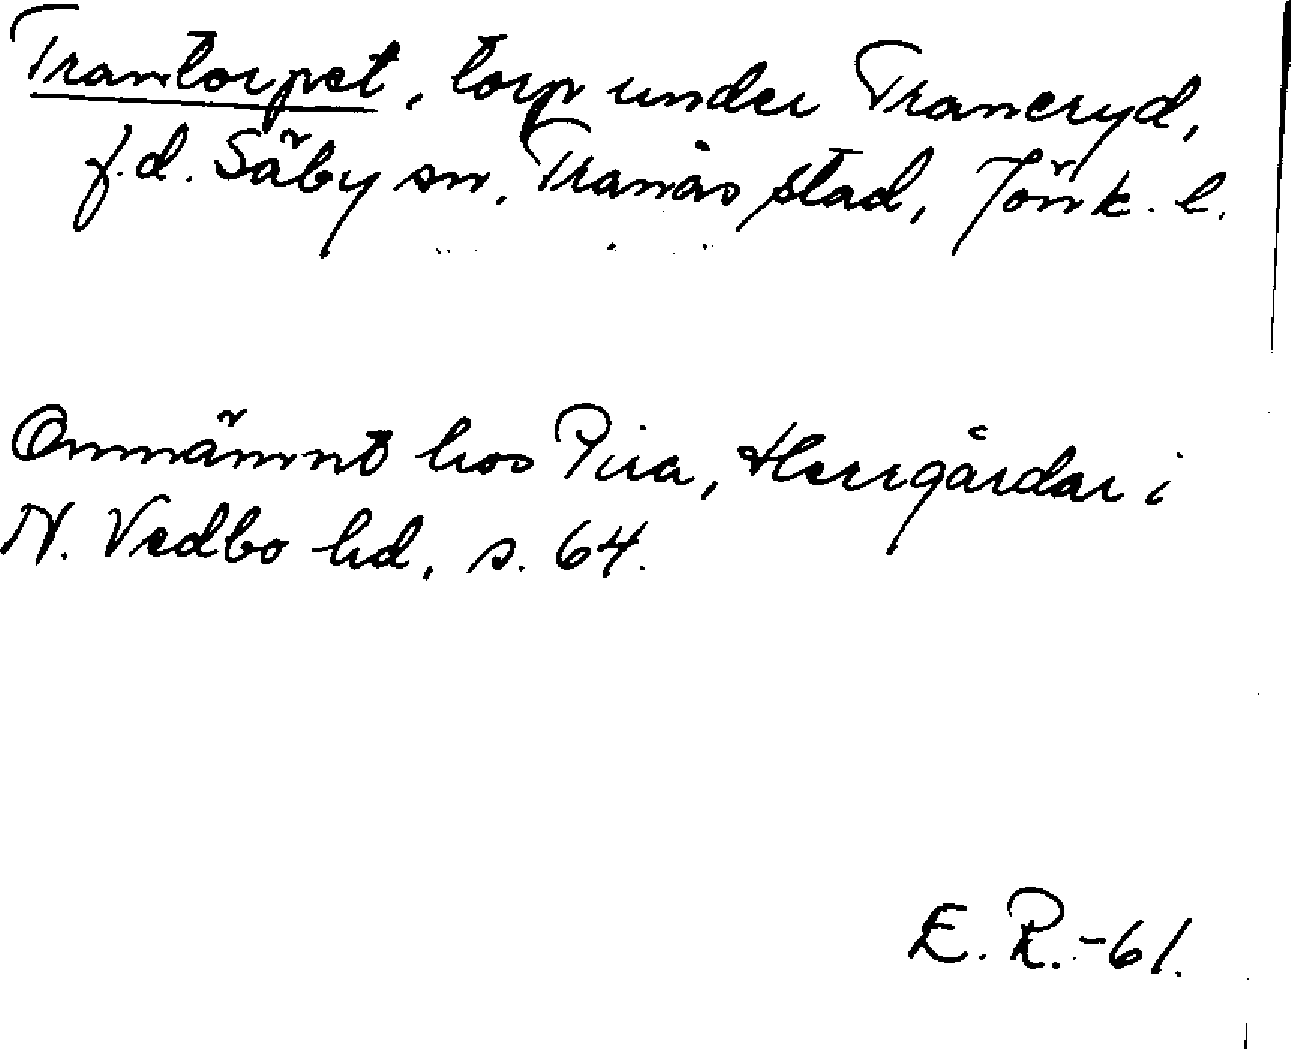 Trantorpet, torp under Traneryd,
f.d. Säby sn, Tranås stad, Jönk. l.
Omnämnt hos Pira, Herrgårdar i
N. Vedbo hd, s. 64.
E. R. -61.